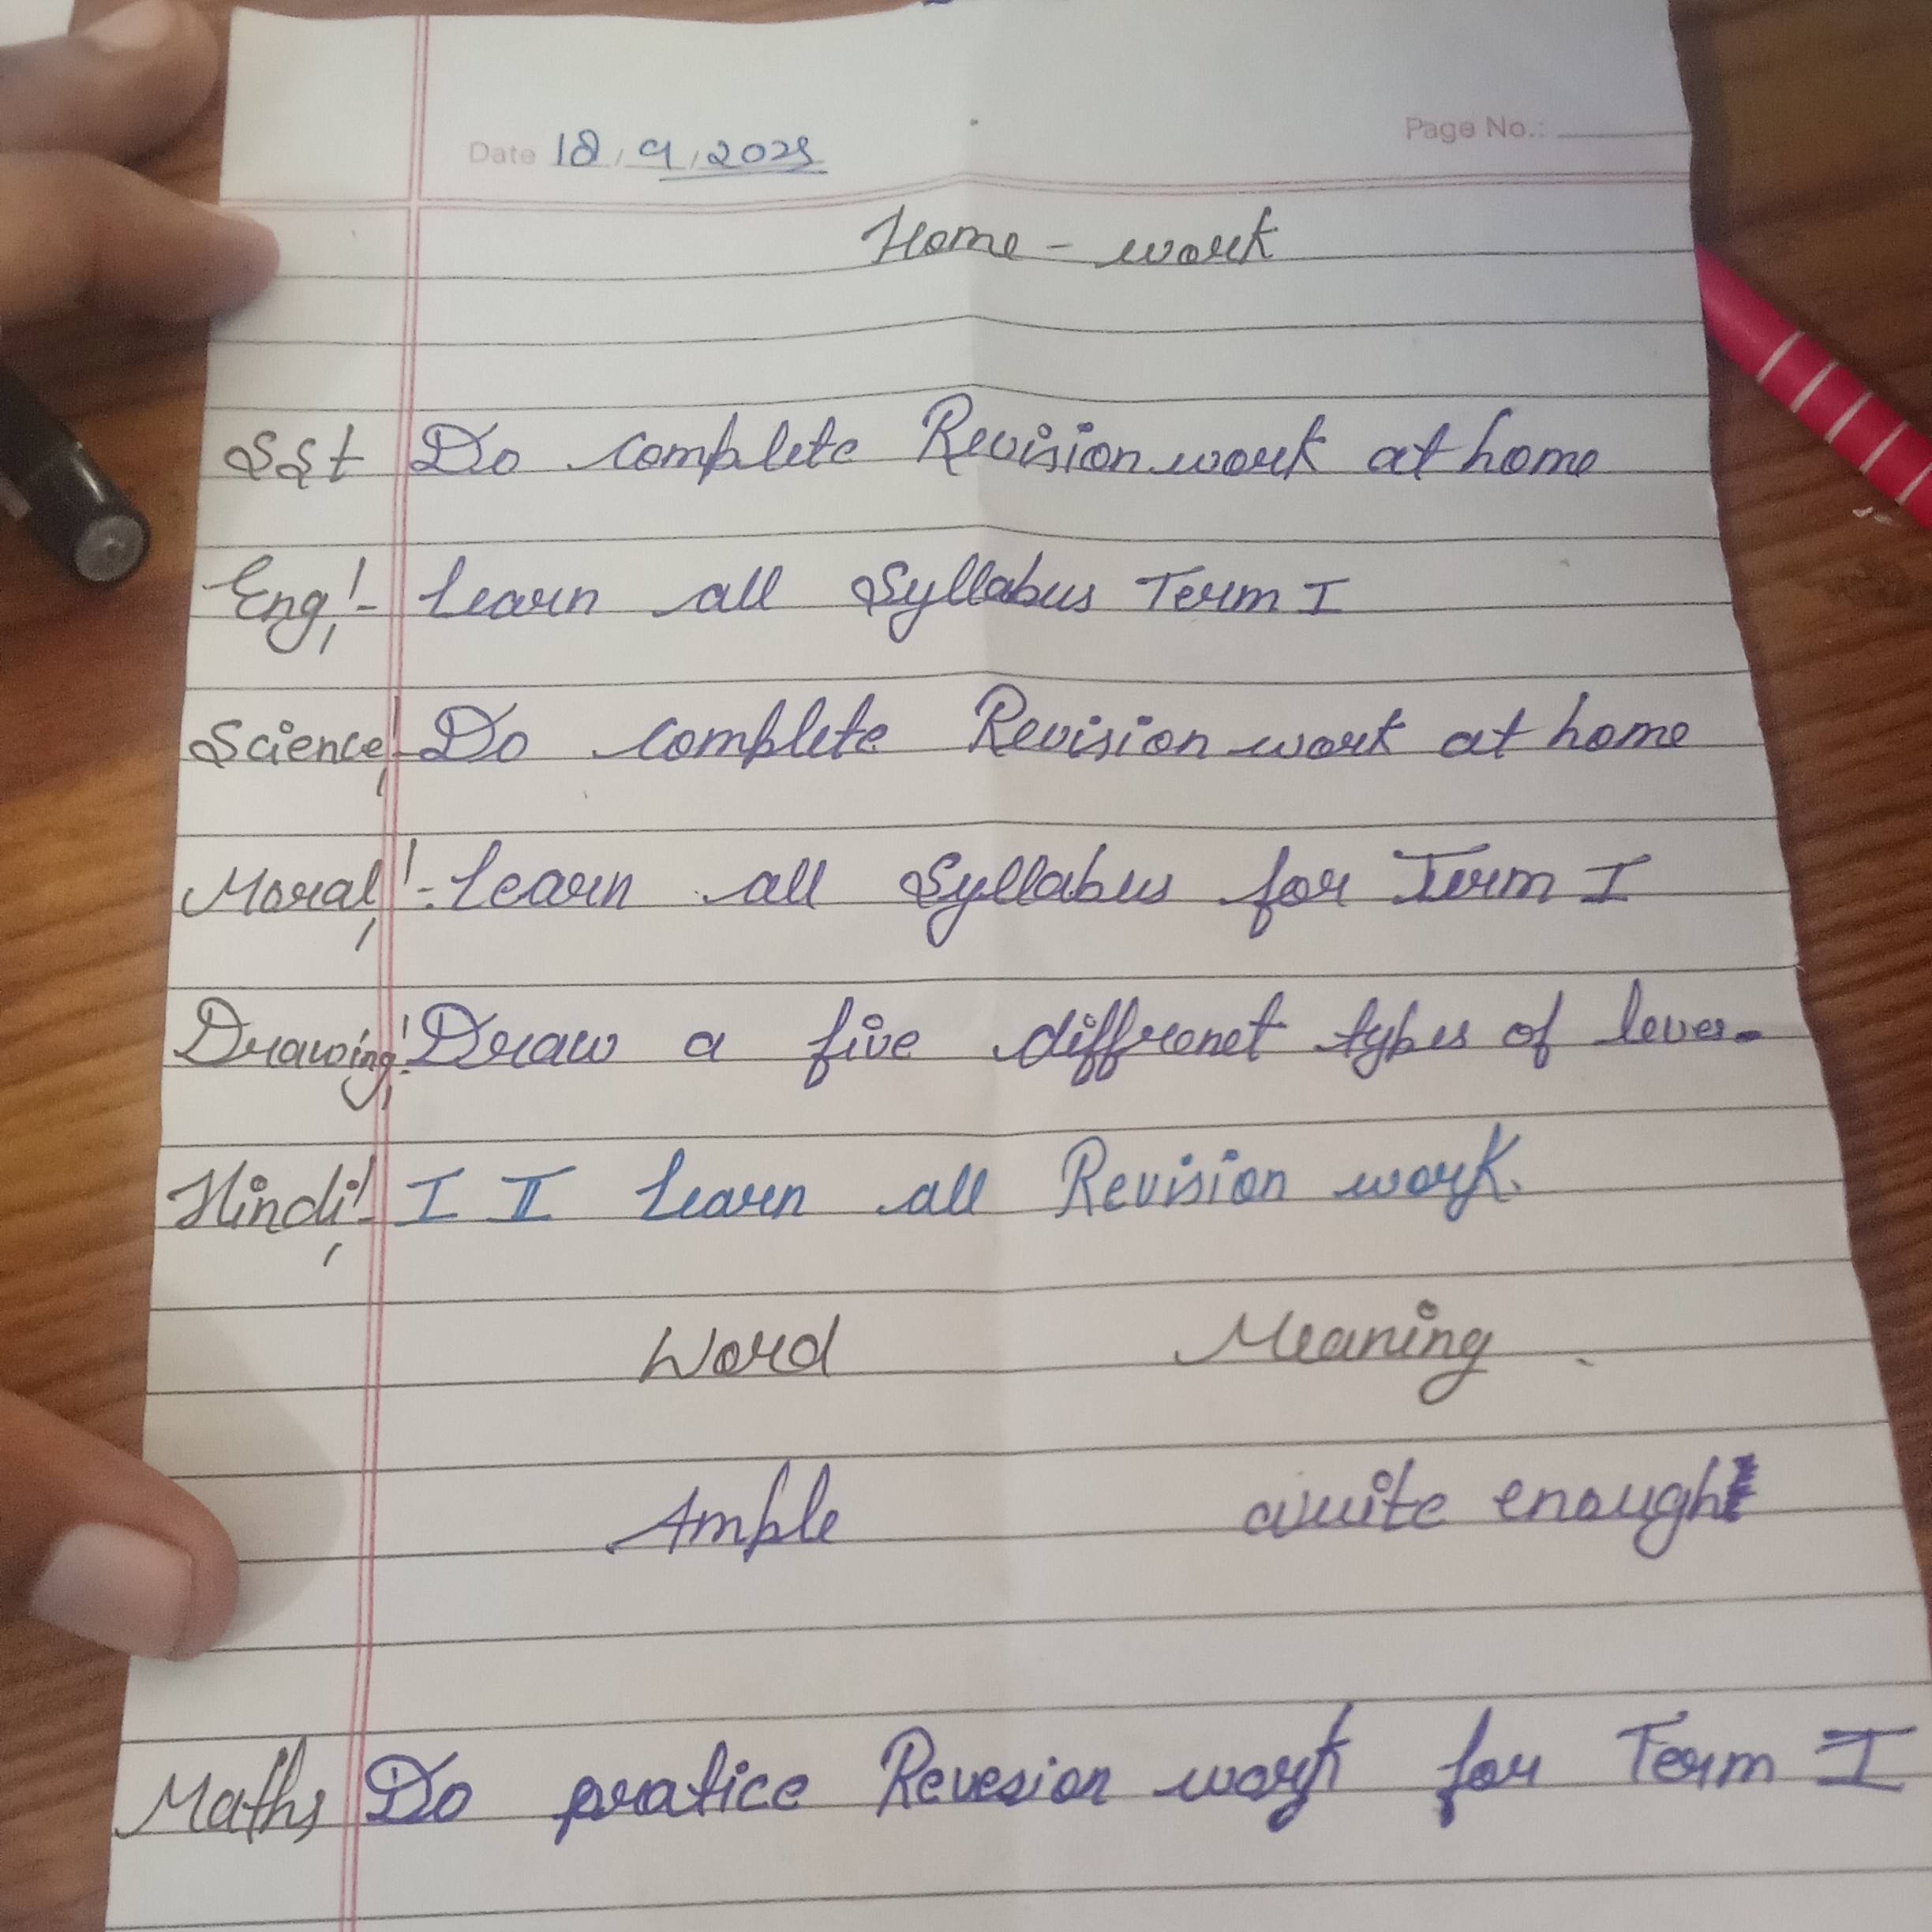 Date 18/9/2025
Page No.:
Home - work
SSt Do complete Revision work at home
Eng:- Learn all Syllabus Term I
Science:- Do complete Revision work at home
Moral:- Learn all Syllabus for Term I
Drawing:- Draw a five diffrenet types of lever.
Hindi:- I II Learn all Revision work.
Word Meaning
Ample Quite enough
Maths Do pratice Revesion work for Term I